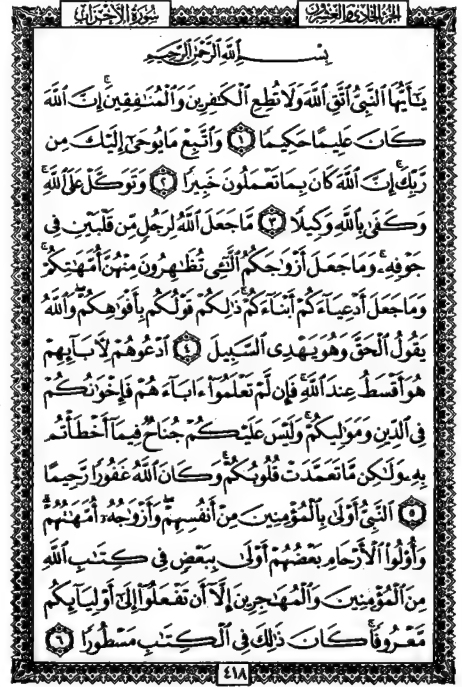 سُورَةُ الأَحْزَابِ الجُزْءُ الحَادِي وَالعِشْرُونَ
بِسْمِ ٱللَّهِ ٱلرَّحْمَٰنِ ٱلرَّحِيمِ
يَٰٓأَيُّهَا ٱلنَّبِىُّ ٱتَّقِ ٱللَّهَ وَلَا تُطِعِ ٱلْكَٰفِرِينَ وَٱلْمُنَٰفِقِينَ ۚ إِنَّ ٱللَّهَ
كَانَ عَلِيمًا حَكِيمًا ١ وَٱتَّبِعْ مَا يُوحَىٰٓ إِلَيْكَ مِن
رَّبِّكَ ۚ إِنَّ ٱللَّهَ كَانَ بِمَا تَعْمَلُونَ خَبِيرًا ٢ وَتَوَكَّلْ عَلَى ٱللَّهِ ۚ
وَكَفَىٰ بِٱللَّهِ وَكِيلًا ٣ مَّا جَعَلَ ٱللَّهُ لِرَجُلٍ مِّن قَلْبَيْنِ فِى
جَوْفِهِۦ ۚ وَمَا جَعَلَ أَزْوَٰجَكُمُ ٱلَّٰٓـِٔى تُظَٰهِرُونَ مِنْهُنَّ أُمَّهَٰتِكُمْ ۚ
وَمَا جَعَلَ أَدْعِيَآءَكُمْ أَبْنَآءَكُمْ ۚ ذَٰلِكُمْ قَوْلُكُم بِأَفْوَٰهِكُمْ ۖ وَٱللَّهُ
يَقُولُ ٱلْحَقَّ وَهُوَ يَهْدِى ٱلسَّبِيلَ ٤ ٱدْعُوهُمْ لِءَابَآئِهِمْ
هُوَ أَقْسَطُ عِندَ ٱللَّهِ ۚ فَإِن لَّمْ تَعْلَمُوٓا۟ ءَابَآءَهُمْ فَإِخْوَٰنُكُمْ
فِى ٱلدِّينِ وَمَوَٰلِيكُمْ ۚ وَلَيْسَ عَلَيْكُمْ جُنَاحٌ فِيمَآ أَخْطَأْتُم
بِهِۦ وَلَٰكِن مَّا تَعَمَّدَتْ قُلُوبُكُمْ ۚ وَكَانَ ٱللَّهُ غَفُورًا رَّحِيمًا
٥ ٱلنَّبِىُّ أَوْلَىٰ بِٱلْمُؤْمِنِينَ مِنْ أَنفُسِهِمْ ۖ وَأَزْوَٰجُهُۥٓ أُمَّهَٰتُهُمْ ۗ
وَأُو۟لُوا۟ ٱلْأَرْحَامِ بَعْضُهُمْ أَوْلَىٰ بِبَعْضٍ فِى كِتَٰبِ ٱللَّهِ
مِنَ ٱلْمُؤْمِنِينَ وَٱلْمُهَٰجِرِينَ إِلَّآ أَن تَفْعَلُوٓا۟ إِلَىٰٓ أَوْلِيَآئِكُم
مَّعْرُوفًا ۚ كَانَ ذَٰلِكَ فِى ٱلْكِتَٰبِ مَسْطُورًا ٦
٤١٨